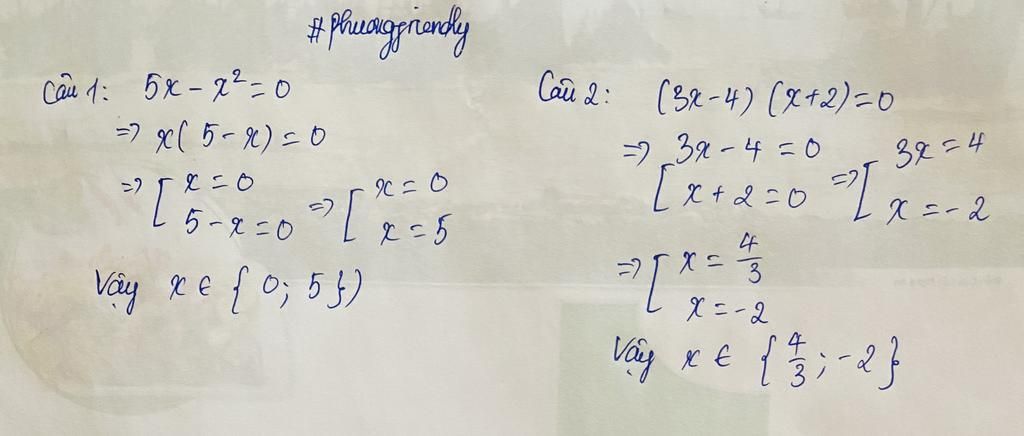 #phuongfriendly
Câu 1: 5x - x² = 0
=> x(5 - x) = 0
=> [ x = 0
5 - x = 0
=> [ x = 0
x = 5
Vậy x ∈ { 0; 5 })
Câu 2: (3x - 4) (x + 2) = 0
=> [ 3x - 4 = 0
x + 2 = 0
=> [ 3x = 4
x = -2
=> [ x = 4/3
x = -2
Vậy x ∈ { 4/3 ; -2 }